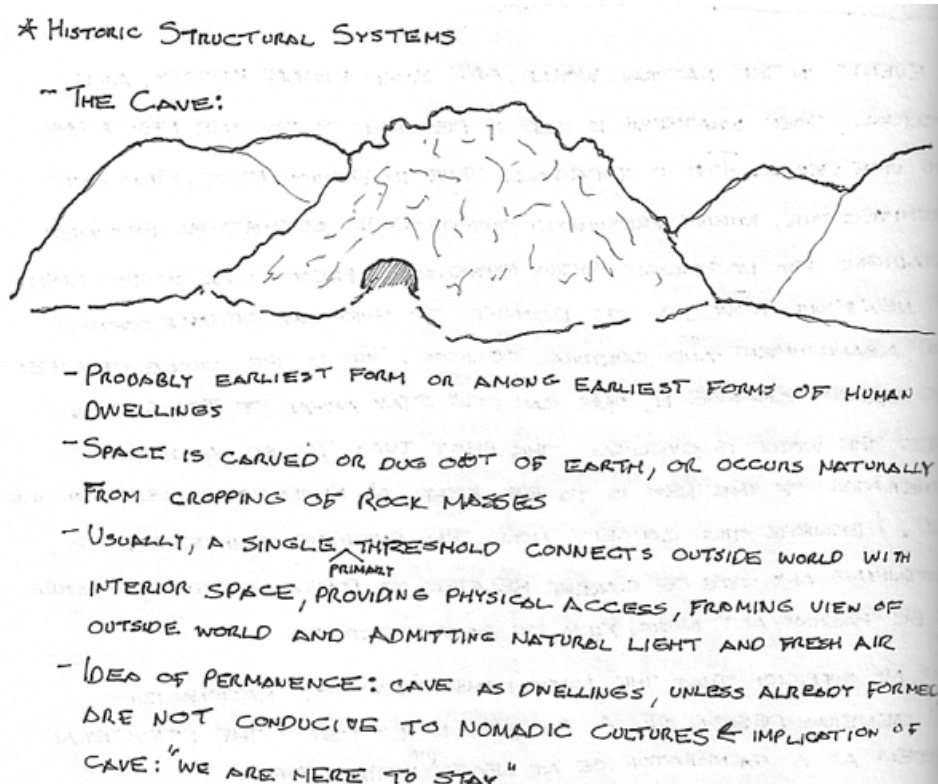 * HISTORIC STRUCTURAL SYSTEMS
~ THE CAVE:
- PROBABLY EARLIEST FORM OR AMONG EARLIEST FORMS OF HUMAN
DWELLINGS
- SPACE IS CARVED OR DUG OUT OF EARTH, OR OCCURS NATURALLY
FROM CROPPING OF ROCK MASSES
- USUALLY, A SINGLE PRIMARY THRESHOLD CONNECTS OUTSIDE WORLD WITH
INTERIOR SPACE, PROVIDING PHYSICAL ACCESS, FRAMING VIEW OF
OUTSIDE WORLD AND ADMITTING NATURAL LIGHT AND FRESH AIR
- IDEA OF PERMANENCE: CAVE AS DWELLINGS, UNLESS ALREADY FORMED
ARE NOT CONDUCIVE TO NOMADIC CULTURES & IMPLICATION OF
CAVE: "WE ARE HERE TO STAY"